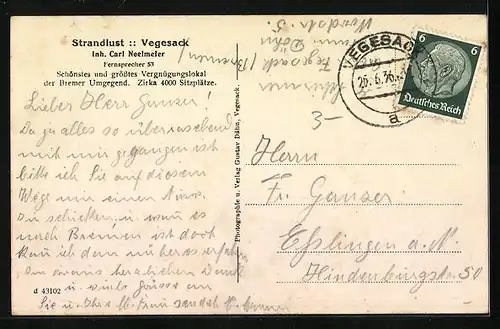 Strandlust :: Vegesack
Inh. Carl Neelmeier
Fernsprecher 53
Schönstes und größtes Vergnügungslokal
der Bremer Umgegend. Zirka 4000 Sitzplätze.
Lieber Herr Ganser!
Da ja alles so überraschend
mit mir gegangen ist
bitte ich Sie auf diesem
Wege mir einen
zu schicken u. wenn es
nach Bremen ist dort
kann ich dann näheres erfahren
Im voraus herzlichen Dank
u. viele Grüsse an
Sie u. Ihre lb. Frau sendet
d 43102
Photographie u. Verlag Gustav Dähn, Vegesack.
VEGESACK
25.6.36
a
6 6
Deutsches Reich
3-
Herrn
Fr. Ganser
Eßlingen a. N.
Hindenburgstr. 50